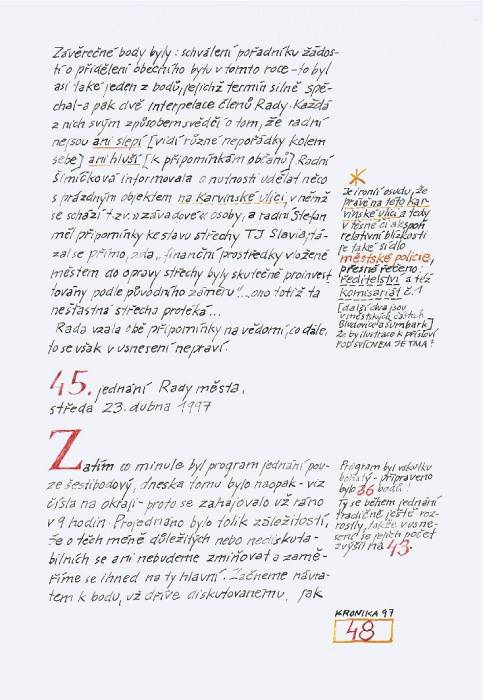 Závěrečné body byly: schválení pořadníku žádos-
tí o přidělení obecního bytu v tomto roce – to byl
asi také jeden z bodů, jejichž termín silně spě-
chal – a pak dvě interpelace členů Rady. Každá
z nich svým způsobem svědčí o tom, že radní
nejsou ani slepí [vidí různé nepořádky kolem
sebe] ani hluší [k připomínkám občanů] Radní
Šimíčková informovala o nutnosti udělat něco
s prázdným objektem na Karvinské ulici, v němž
se schází t.zv. »závadové« osoby, a radní Štefan
měl připomínky ke stavu střechy TJ Slavia, tá-
zal se přímo, zda „finanční prostředky vložené
městem do opravy střechy byly skutečně proinves-
továny podle původního záměru“... ono totiž ta
nešťastná střecha protéká...
Rada vzala obě připomínky na vědomí, co dále,
to se však v usnesení nepraví.
Je ironií osudu, že
právě na této Kar-
vinské ulici a tedy
v těsné či alespoň
relativní blízkosti
je také sídlo
městské policie,
přesně řečeno:
ředitelství a též
komisariát č.1
[další dva jsou
v městských částech
Bludovice a Šumbark]
Že by ilustrace k přísloví
POD SVÍCNEM JE TMA?
45. jednání Rady města,
středa 23. dubna 1997
Zatím co minule byl program jednání pou-
ze šestibodový, dneska tomu bylo naopak – viz
čísla na okraji – proto se zahajovalo už ráno
v 9 hodin. Projednáno bylo tolik záležitostí,
že o těch méně důležitých nebo nediskuta-
bilních se ani nebudeme zmiňovat a zamě-
říme se ihned na ty hlavní. Začneme návra-
tem k bodu, už dříve diskutovanému, jak
Program byl vskutku
bohatý – připraveno
bylo 36 bodů!
Ty se během jednání
tradičně ještě roz-
rostly, takže v usne-
sení se jejich počet
zvýšil na 43.
KRONIKA 97
48